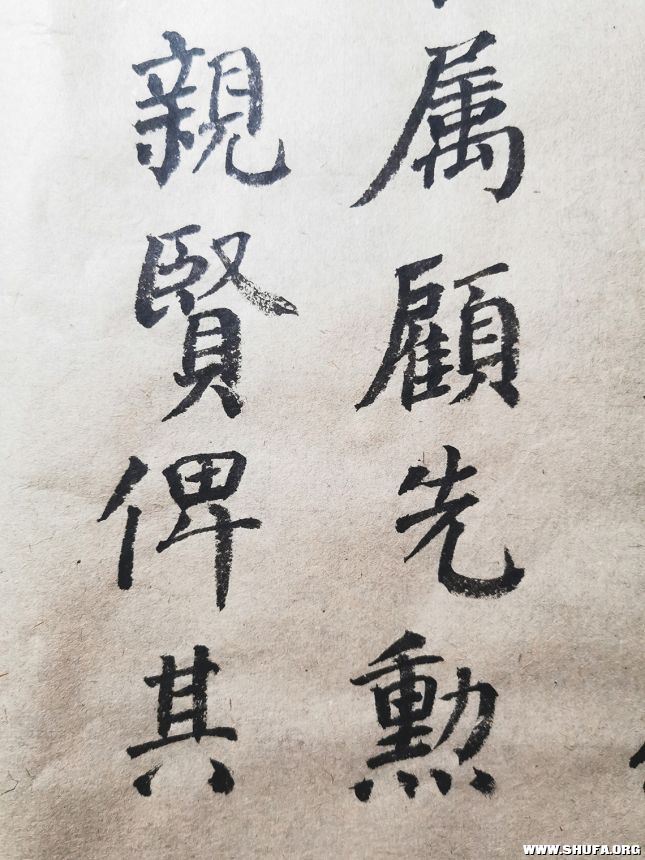 属顧先勳
親賢俾其
WWW.SHUFA.ORG